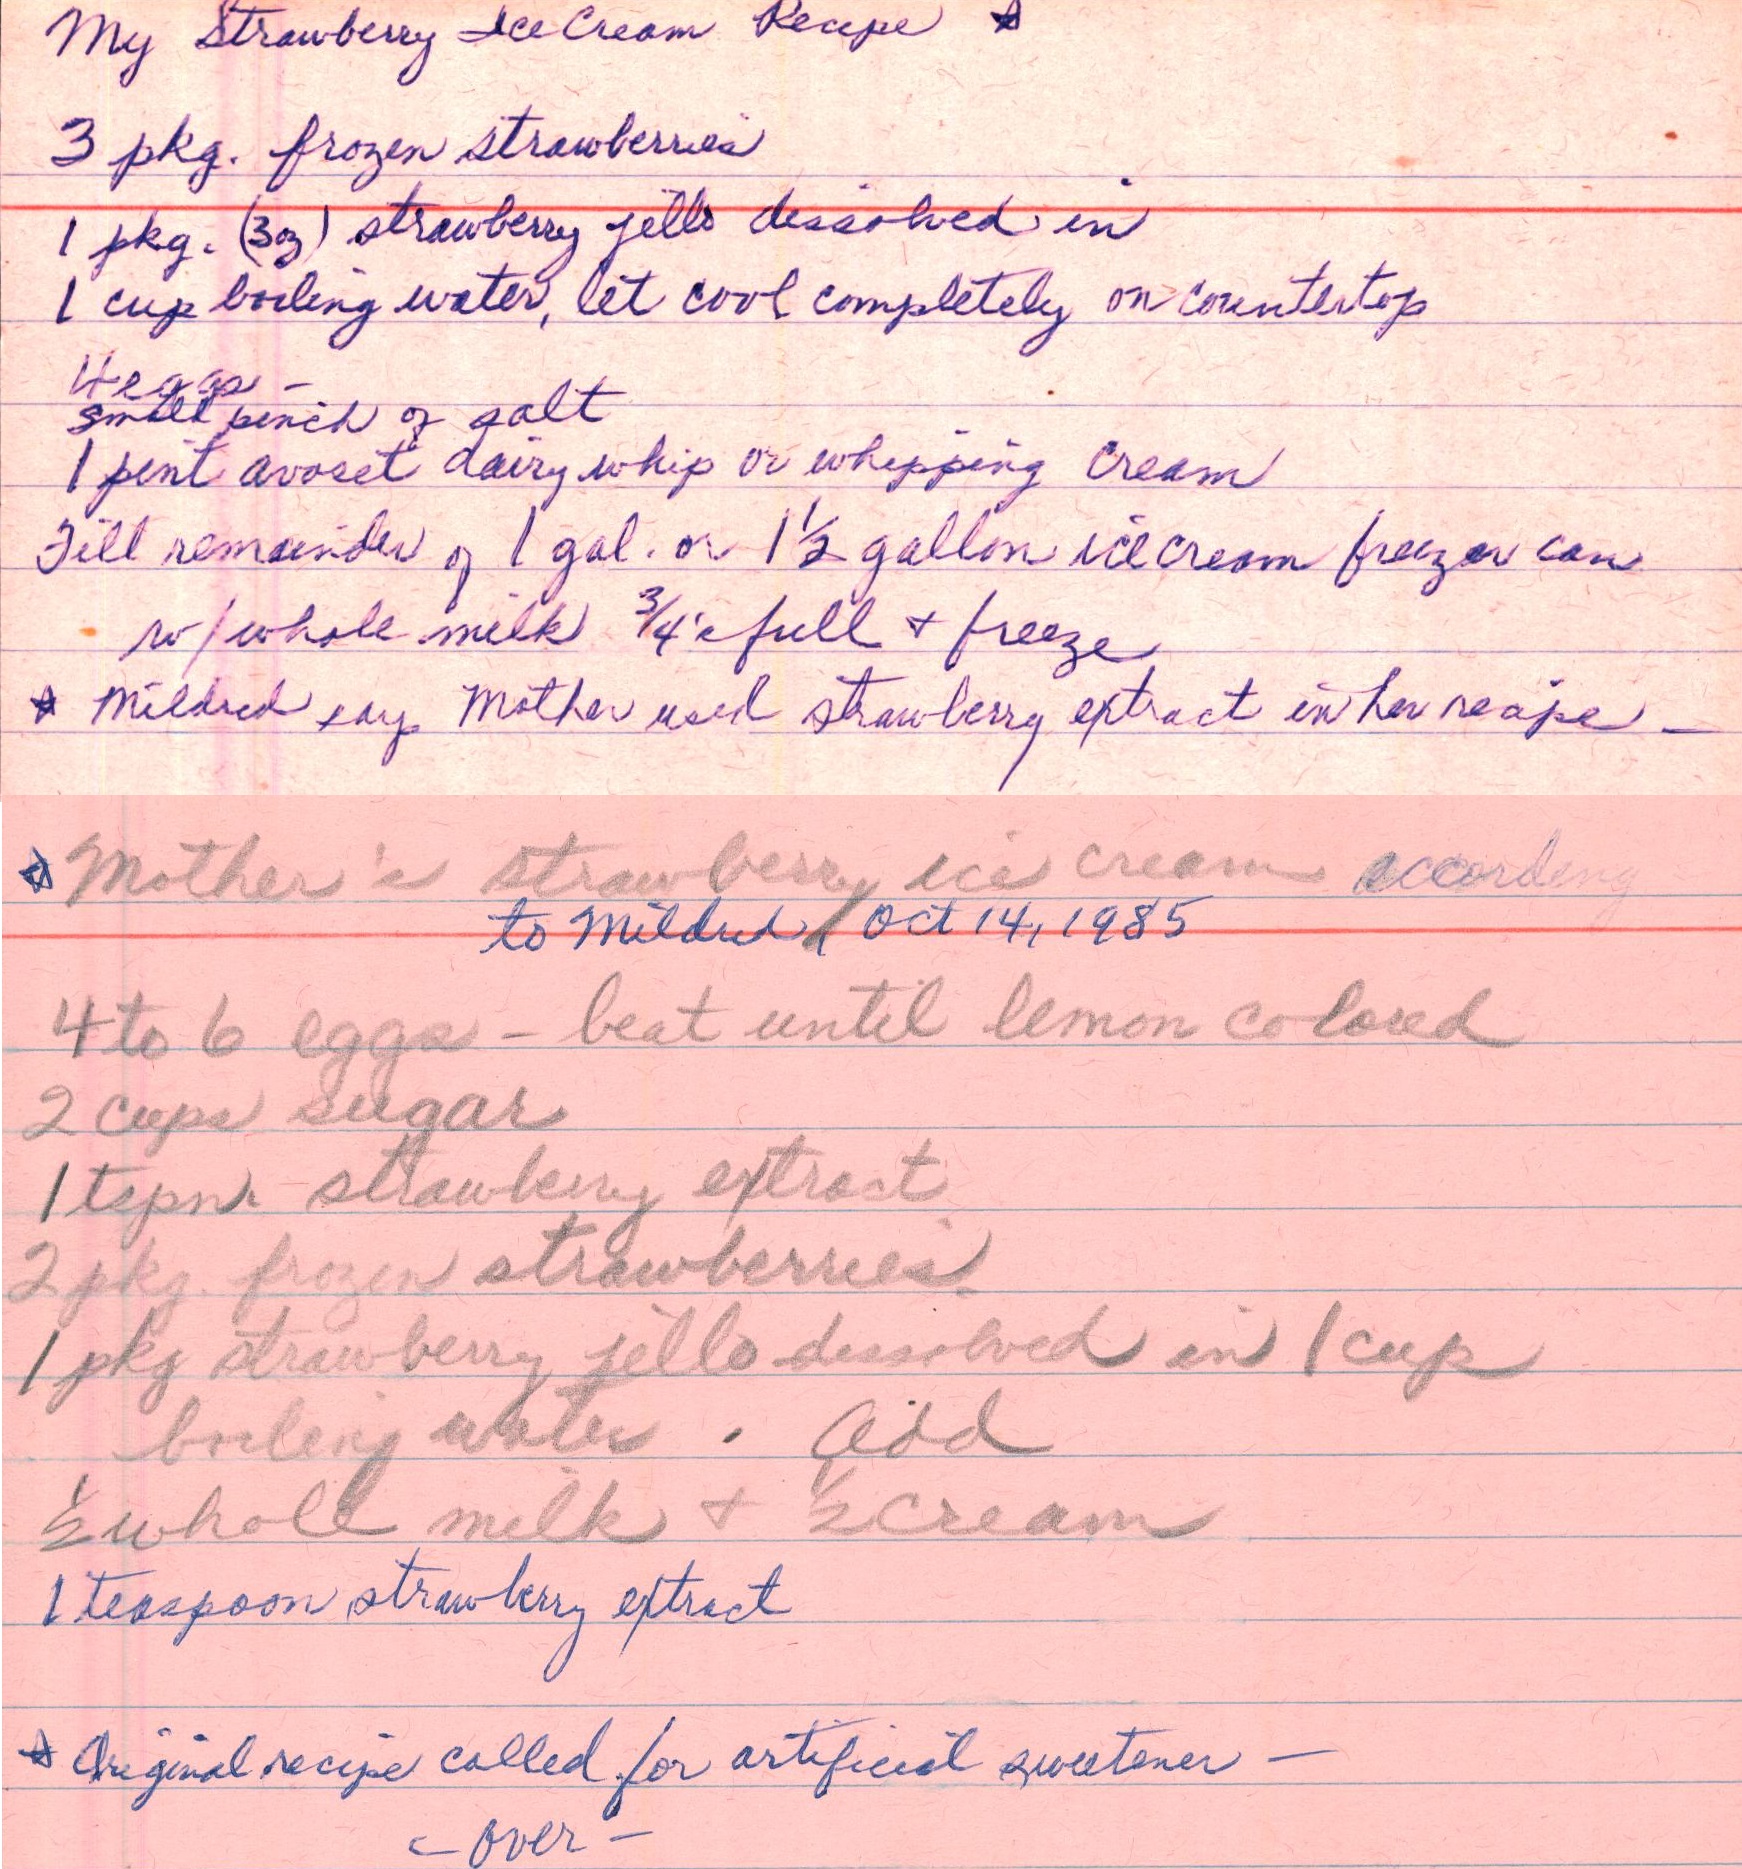 My Strawberry Ice Cream Recipe ☆
3 pkg. frozen strawberries
1 pkg. (3oz) strawberry jello dissolved in
1 cup boiling water, let cool completely on countertop
4 eggs -
small pinch of salt
1 pint avoset dairy whip or whipping cream
Fill remainder of 1 gal. or 1 1/2 gallon ice cream freezer can
w/whole milk 3/4's full + freeze
☆ Mildred says Mother used strawberry extract in her recipe -
☆ Mother's strawberry ice cream according
to Mildred, Oct 14, 1985
4 to 6 eggs - beat until lemon colored
2 cups sugar
1 tspn. strawberry extract
2 pkg. frozen strawberries.
1 pkg strawberry jello dissolved in 1 cup
boiling water. Add
1/2 whole milk + 1/2 cream
1 teaspoon strawberry extract
☆ Original recipe called for artificial sweetener -
- over -